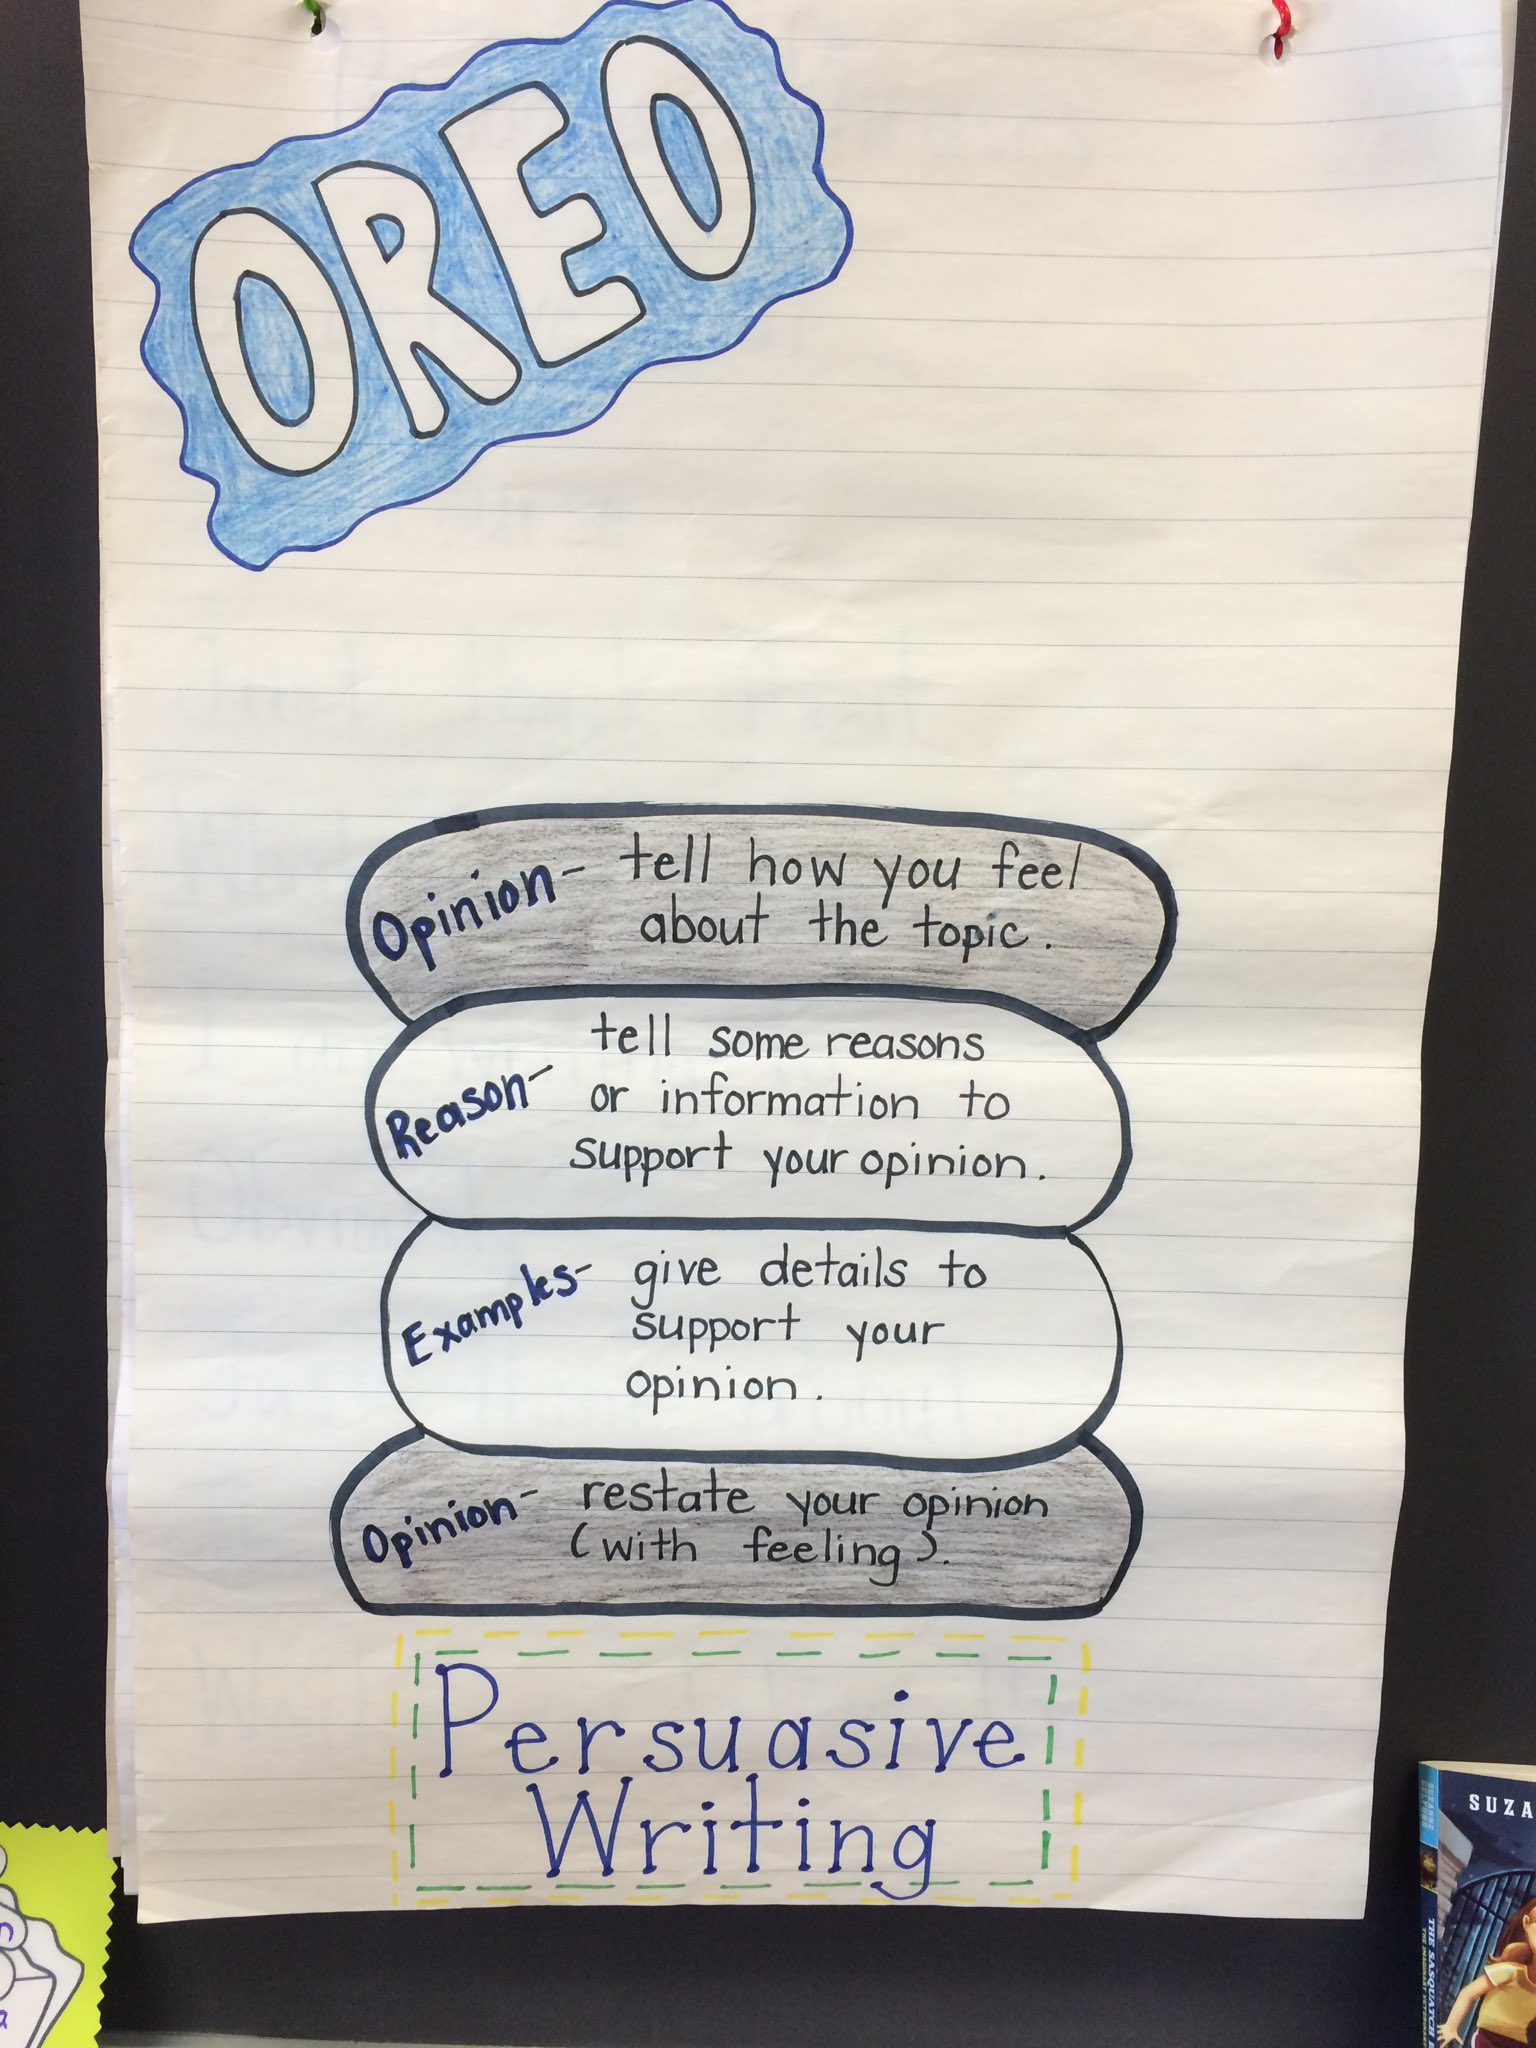 OREO
Opinion- tell how you feel
about the topic.
Reason- tell some reasons
or information to
support your opinion.
Examples- give details to
support your
opinion.
Opinion- restate your opinion
(with feeling).
Persuasive
Writing
SUZA
SUZANNE
SELFORS
THE SASQUATCH
THE IMAGINARY VETERINARY